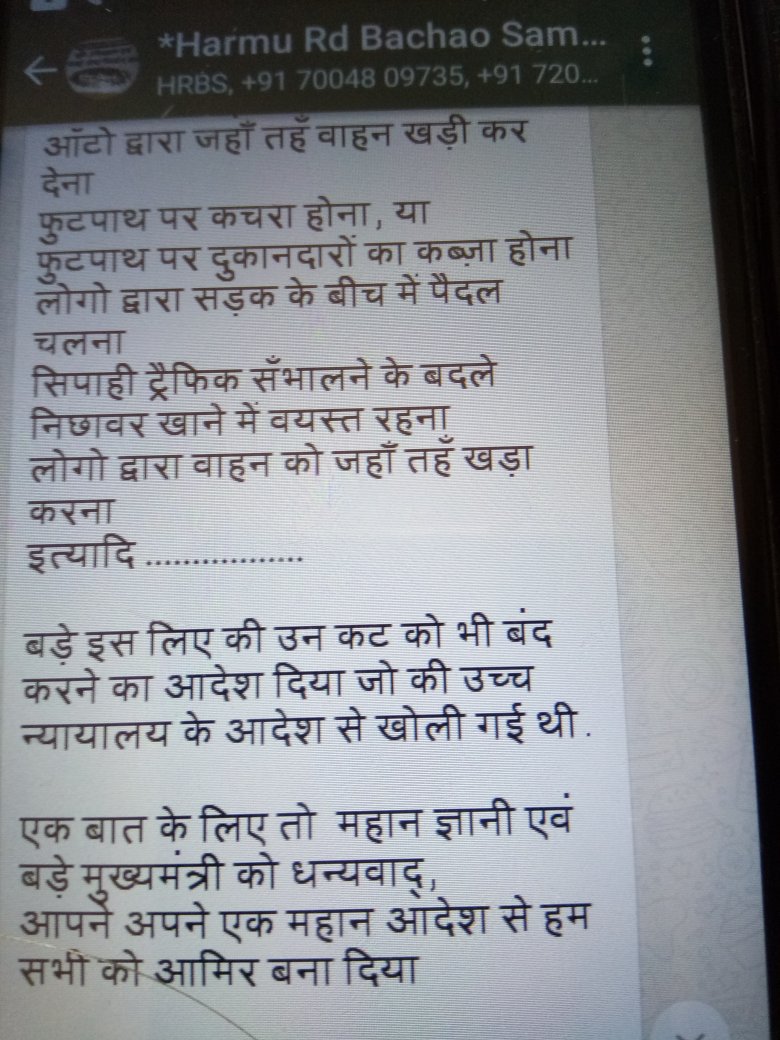 *Harmu Rd Bachao Sam...
HRBS, +91 70048 09735, +91 720...
ऑटो द्वारा जहाँ तहँ वाहन खड़ी कर
देना
फुटपाथ पर कचरा होना, या
फुटपाथ पर दुकानदारों का कब्ज़ा होना
लोगो द्वारा सड़क के बीच में पैदल
चलना
सिपाही ट्रैफिक सँभालने के बदले
निछावर खाने में वयस्त रहना
लोगो द्वारा वाहन को जहाँ तहँ खड़ा
करना
इत्यादि .................
बड़े इस लिए की उन कट को भी बंद
करने का आदेश दिया जो की उच्च
न्यायालय के आदेश से खोली गई थी .
एक बात के लिए तो महान ज्ञानी एवं
बड़े मुख्यमंत्री को धन्यवाद्,
आपने अपने एक महान आदेश से हम
सभी को आमिर बना दिया